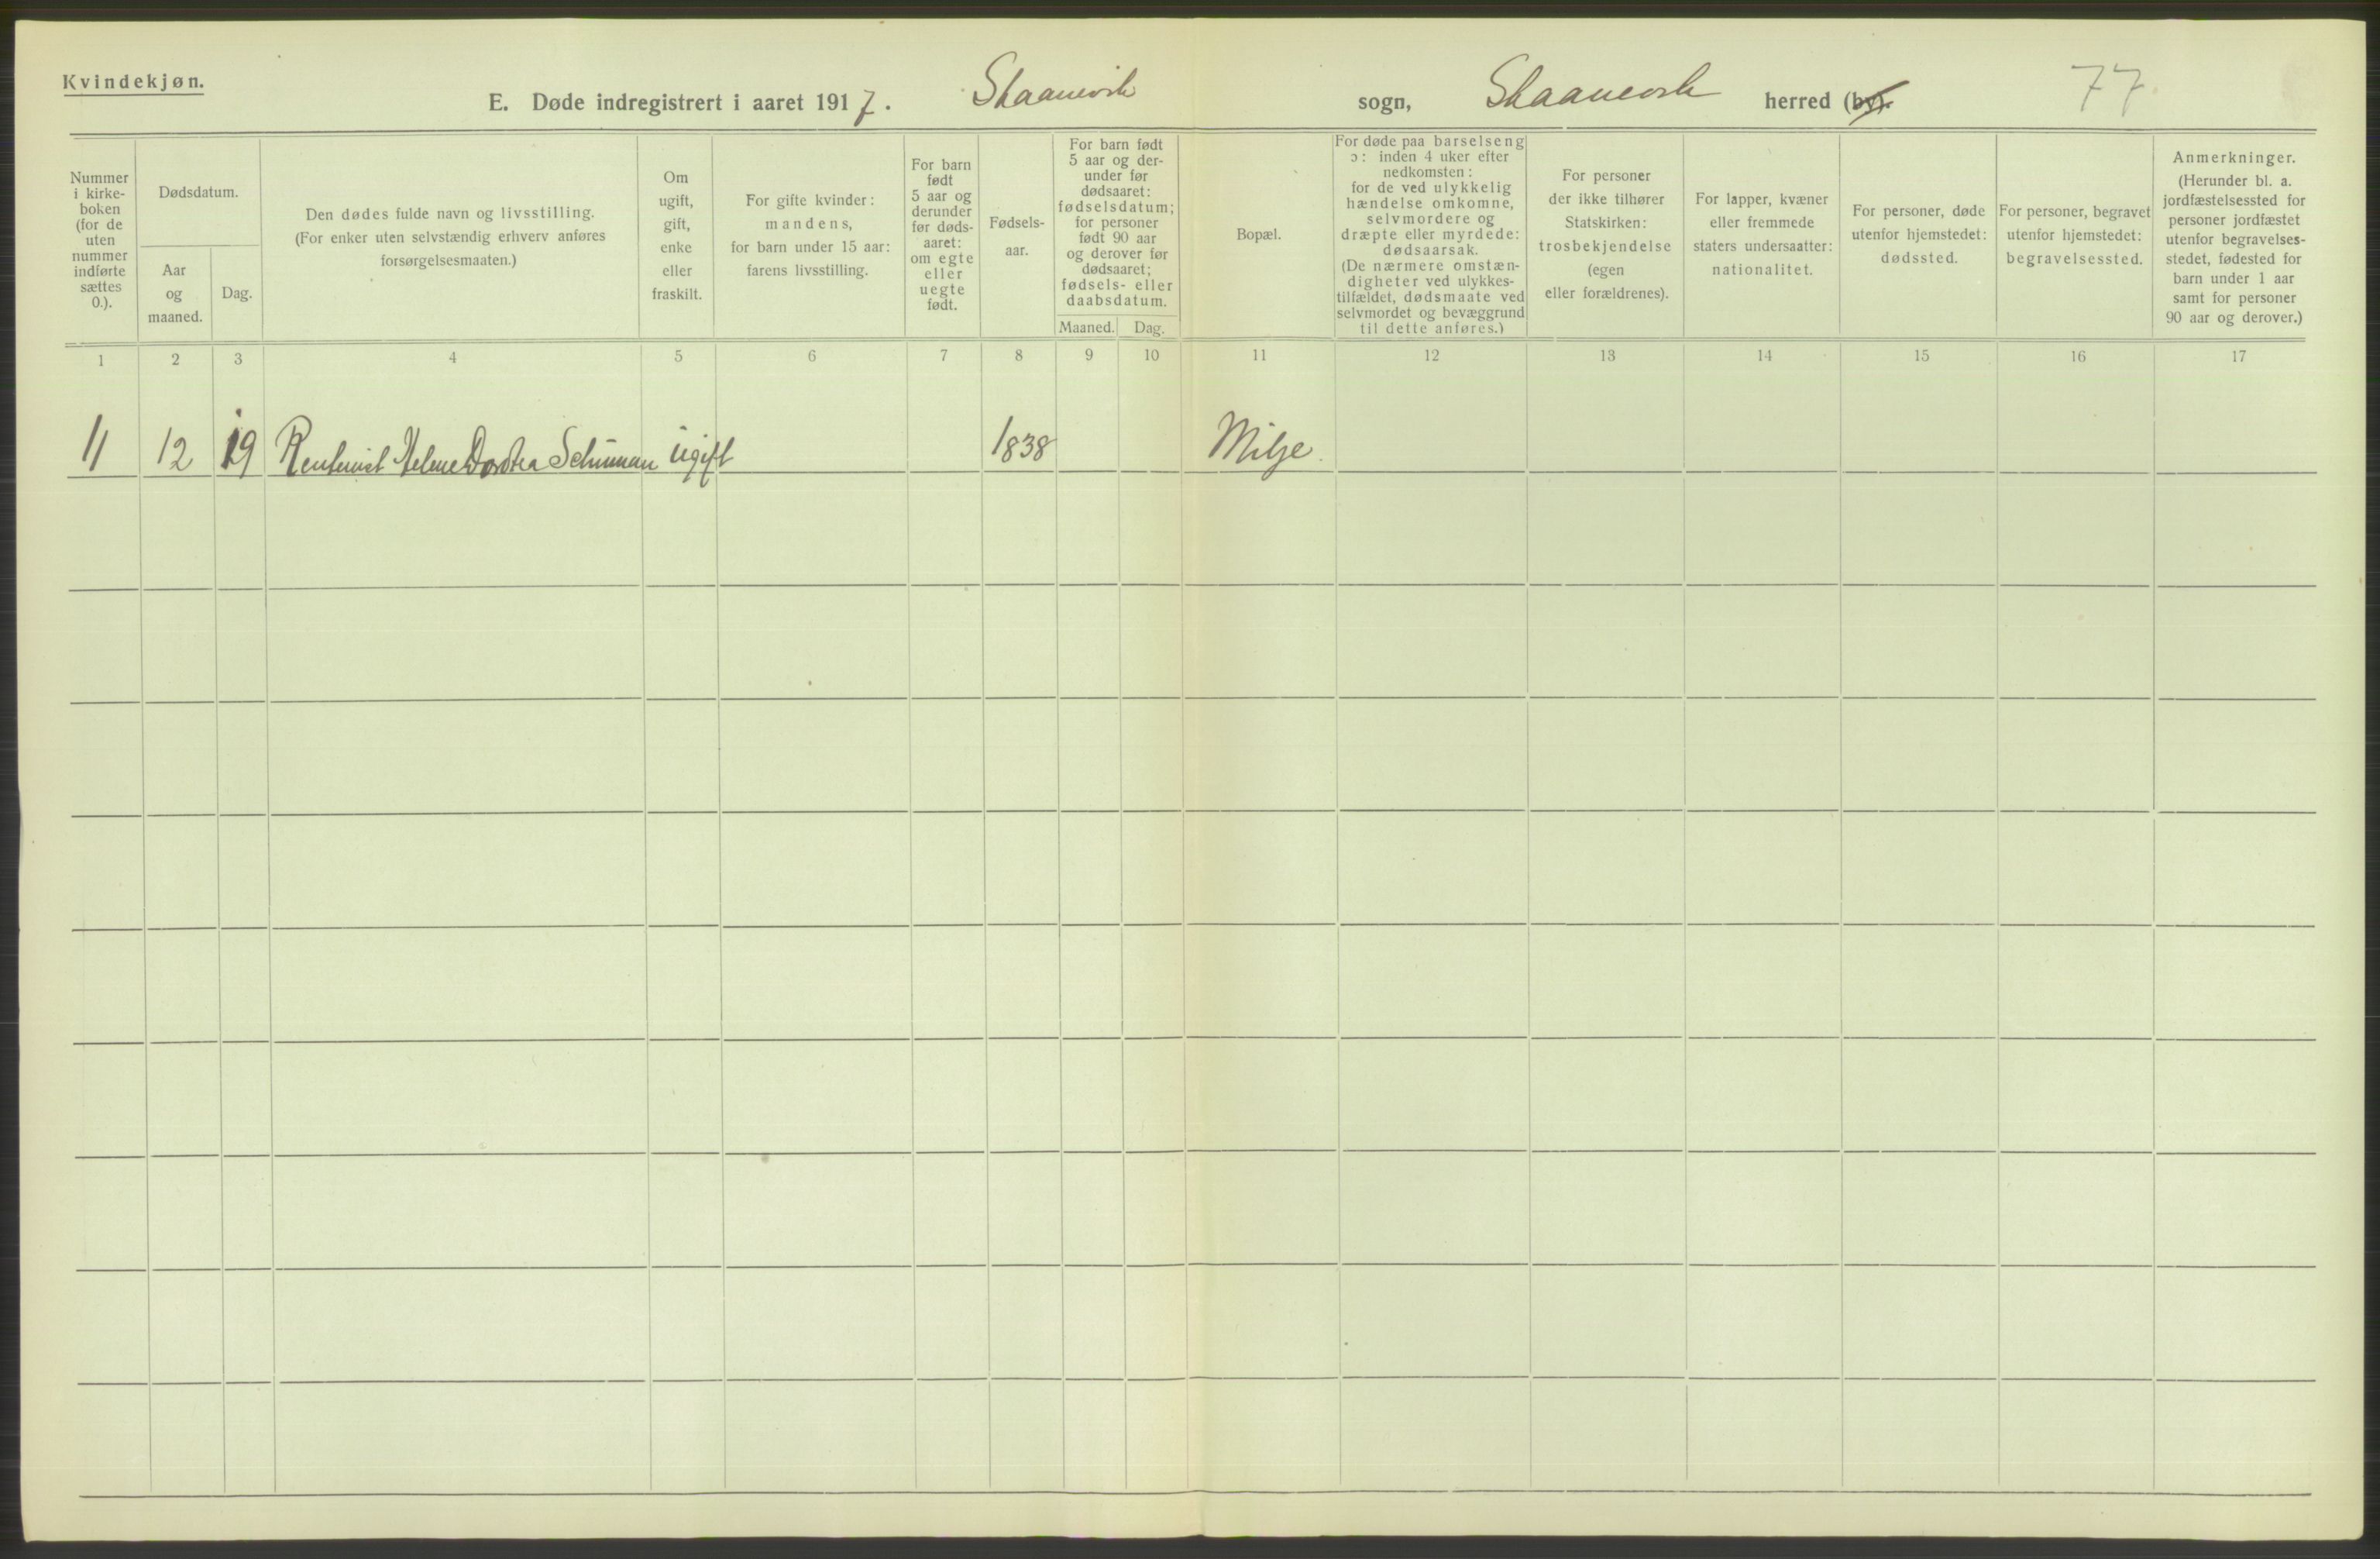 Kvindekjøn.
E. Døde indregistrert i aaret 1917. Skaanevik sogn, Skaanevik herred (by).
77
Nummer i kirke-
boken
(for de
uten
nummer
indførte
sættes
0.).
Dødsdatum.
Aar
og
maaned.
Dag.
Den dødes fulde navn og livsstilling.
(For enker uten selvstændig erhverv anføres
forsørgelsesmaaten.)
Om
ugift,
gift,
enke
eller
fraskilt.
For gifte kvinder:
mandens,
for barn under 15 aar:
farens livsstilling.
For barn
født
5 aar og
derunder
før døds-
aaret:
om egte
eller
uegte
født.
Fødsels-
aar.
For barn født
5 aar og der-
under før
dødsaaret:
fødselsdatum;
for personer
født 90 aar
og derover før
dødsaaret;
fødsels- eller
daabsdatum.
Maaned. Dag.
Bopæl.
For døde paa barselseng
ɔ: inden 4 uker efter
nedkomsten:
for de ved ulykkelig
hændelse omkomne,
selvmordere og
dræpte eller myrdede:
dødsaarsak.
(De nærmere omstæn-
digheter ved ulykkes-
tilfældet, dødsmaate ved
selvmordet og bevæggrund
til dette anføres.)
For personer
der ikke tilhører
Statskirken:
trosbekjendelse
(egen
eller forældrenes).
For lapper, kvæner
eller fremmede
staters undersaatter:
nationalitet.
For personer, døde
utenfor hjemstedet:
dødssted.
For personer, begravet
utenfor hjemstedet:
begravelsessted.
Anmerkninger.
(Herunder bl. a.
jordfæstelsessted for
personer jordfæstet
utenfor begravelses-
stedet, fødested for
barn under 1 aar
samt for personer
90 aar og derover.)
1 2 3 4 5 6 7 8 9 10 11 12 13 14 15 16 17
11 12 19 Rentenist Helene Dorothea Schuman ugift 1838 Milje.